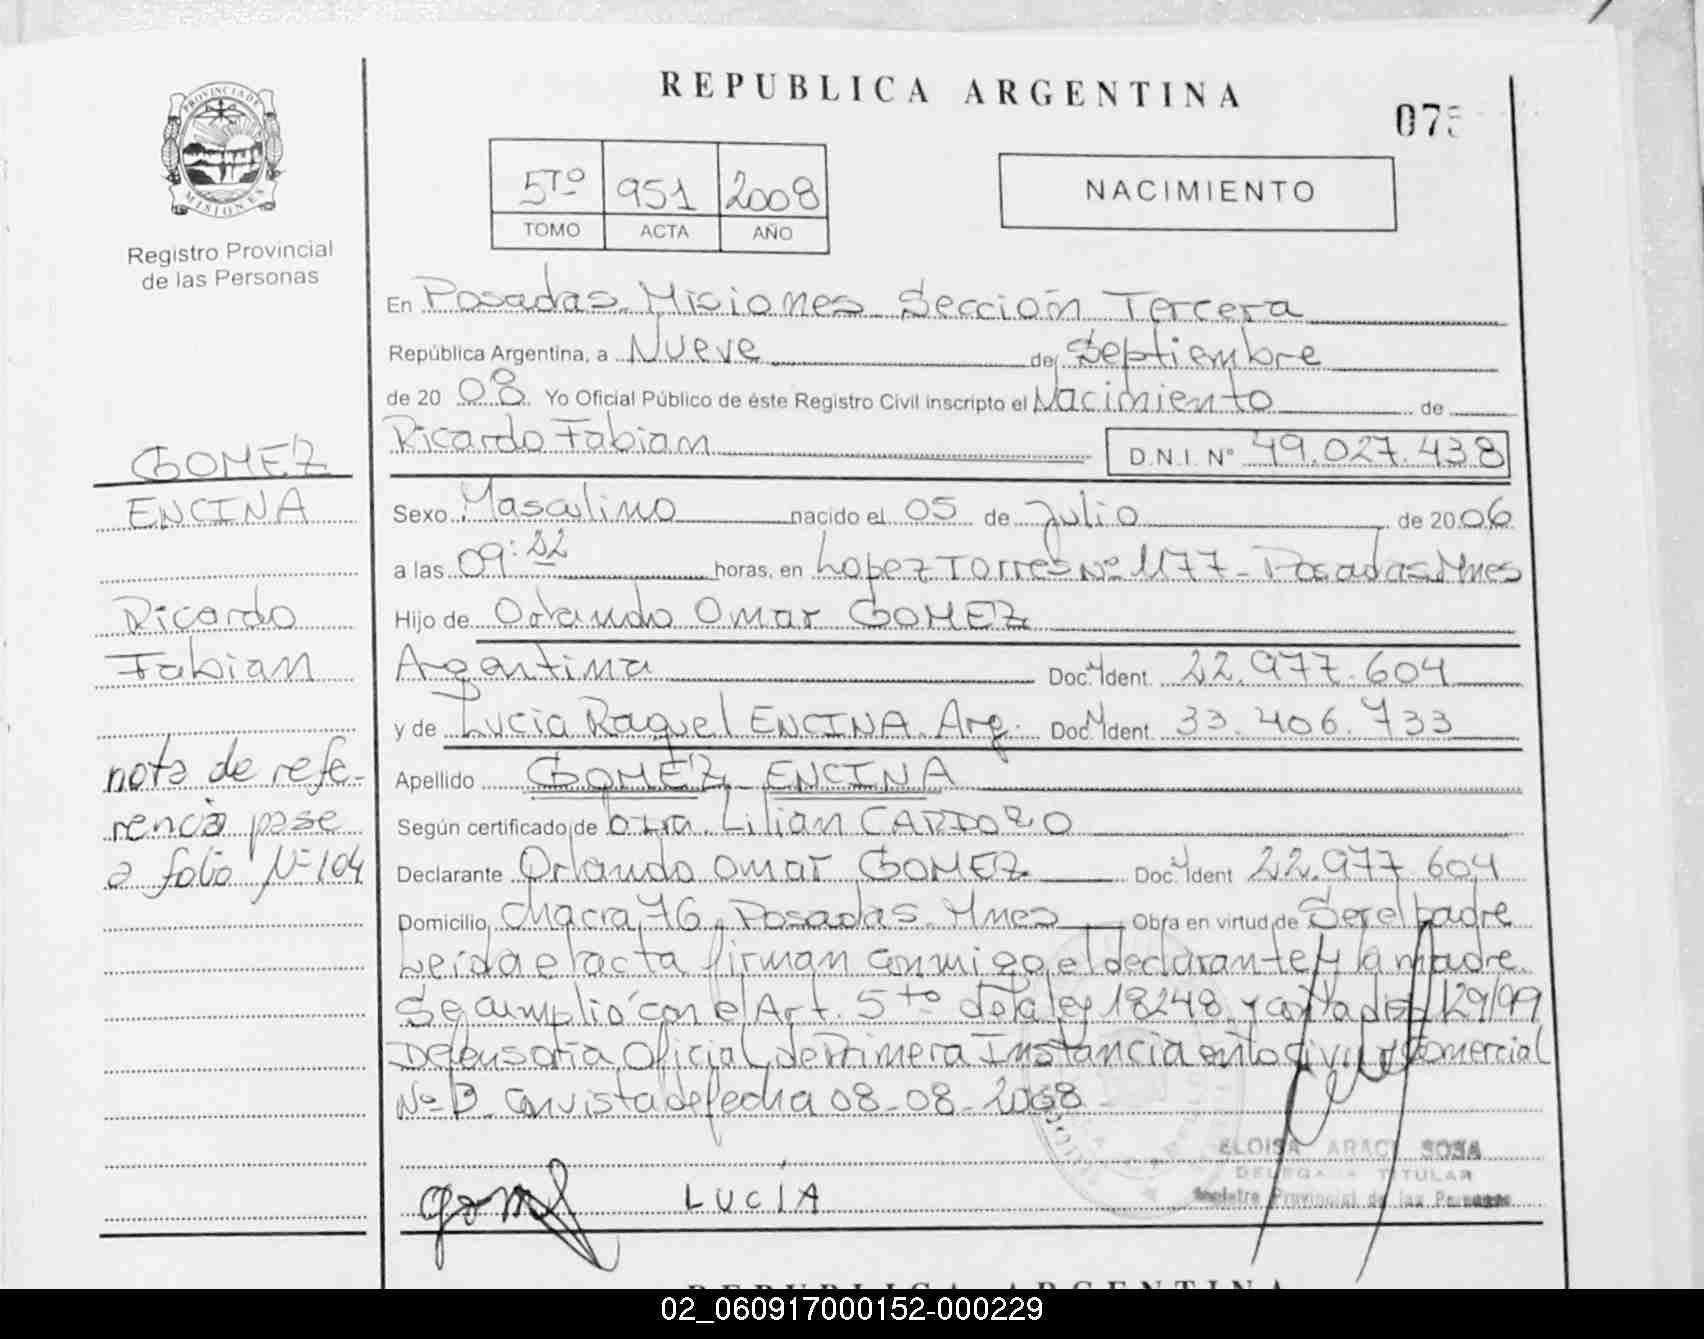 REPUBLICA ARGENTINA
07
PROVINCIA DE
MISIONES
Registro Provincial
de las Personas
5TO 951 2008
TOMO ACTA AÑO
NACIMIENTO
En Posadas Misiones Sección Tercera
República Argentina, a Nueve de Septiembre
de 2008 Yo Oficial Público de éste Registro Civil inscripto el Nacimiento de
Ricardo Fabian D.N.I. Nº 49.027.438
Sexo Masculino nacido el 05 de Julio de 2006
a las 09: horas, en Lopez Torres Nº 1177 - Posadas Mnes
Hijo de Orlando Omar GOMEZ
Argentina Doc. Ident. 22.977.604
y de Lucia Raquel ENCINA. Arg. Doc. Ident. 33.406.733
Apellido GOMEZ ENCINA
Según certificado de Lilian CARDOZO
Declarante Orlando Omar GOMEZ Doc. Ident 22.977.604
Domicilio Chacra 76, Posadas. Mnes Obra en virtud de Ser el padre
Leida el acta firman conmigo el declarante y la madre.
Se cumplió con el Art. 5to de la ley 18248 y 129/99
Defensoria Oficial de Primera Instancia en lo Civil y Comercial
Nº 3. Con vista de fecha 08-08-2008
ELOISA ARACI SOSA
DELEGADA TITULAR
Registro Provincial de las Personas
LUCÍA
GOMEZ
ENCINA
Ricardo
Fabian
nota de refe-
rencia pase
a folio Nº 104
REPUBLICA ARGENTINA
02_060917000152-000229